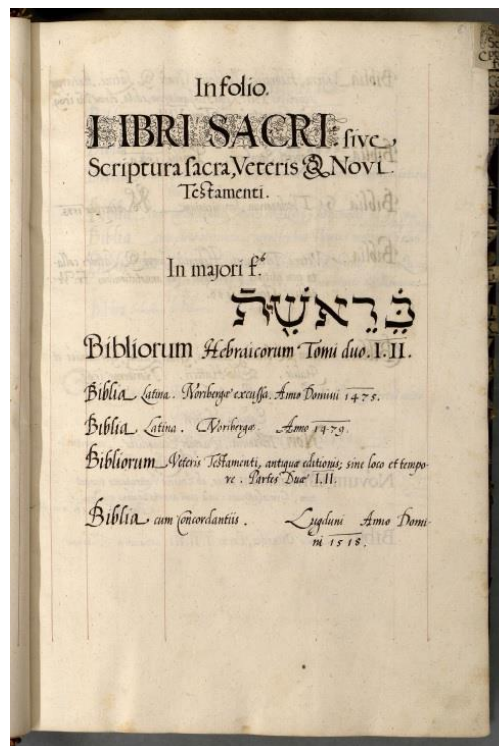 In folio.
LIBRI SACRI: sive
Scriptura sacra, Veteris & Novi
Testamenti.
In majori f.º
בְּרֵאשִׁית
Bibliorum Hebraicorum Tomi duo. I. II.
Biblia Latina. Noribergæ excussa. Anno Domini 1475.
Biblia Latina. Noribergæ. Anno 1479.
Bibliorum Veteris Testamenti, antiquæ editionis; sine loco et tempo-
re. Partes Duæ I. II.
Biblia cum Concordantiis. Lugduni Anno Domi-
ni 1518.